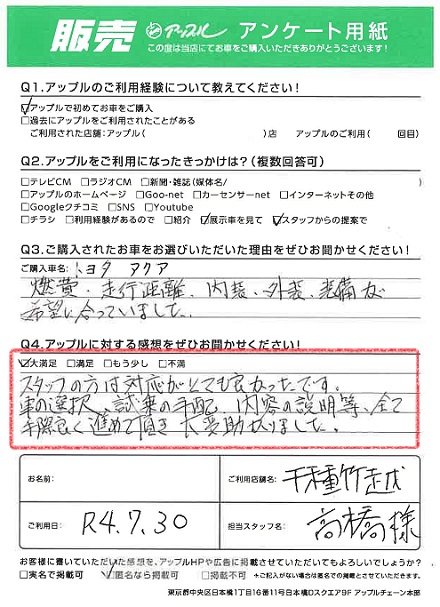 販売 アップル アンケート用紙
この度は当店にてお車をご購入いただきありがとうございます!
Q1.アップルのご利用経験について教えてください!
☑アップルで初めてお車をご購入
□過去にアップルをご利用されたことがある
ご利用された店舗:アップル( )店 アップルのご利用( 回目)
Q2.アップルをご利用になったきっかけは?(複数回答可)
□テレビCM □ラジオCM □新聞・雑誌(媒体名/ )
□アップルのホームページ □Goo-net □カーセンサーnet □インターネットその他
□Googleクチコミ □SNS □Youtube
□チラシ □利用経験があるので □紹介 ☑展示車を見て ☑スタッフからの提案で
Q3.ご購入されたお車をお選びいただいた理由をぜひお聞かせください!
ご購入車名:トヨタ アクア
燃費、走行距離、内装、外装、装備が
希望に合っていました。
Q4.アップルに対する感想をぜひお聞かせください!
☑大満足 □満足 □もう少し □不満
スタッフの方は対応がとても良かったです。
車の選択、試乗の手配、内容の説明等、全て
手際良く進めて頂き大変助かりました。
お名前:
ご利用店舗名: 千種竹越
ご利用日: R4.7.30
担当スタッフ名: 高橋様
お客様に書いていただいた感想を、アップルHPや広告に掲載させていただいてもよろしいでしょうか?
□実名で掲載可 ☑匿名なら掲載可 □掲載不可 *ご記入がない場合は匿名での掲載とさせていただきます。
東京都中央区日本橋1丁目16番11号日本橋Dスクエア9F アップルチェーン本部